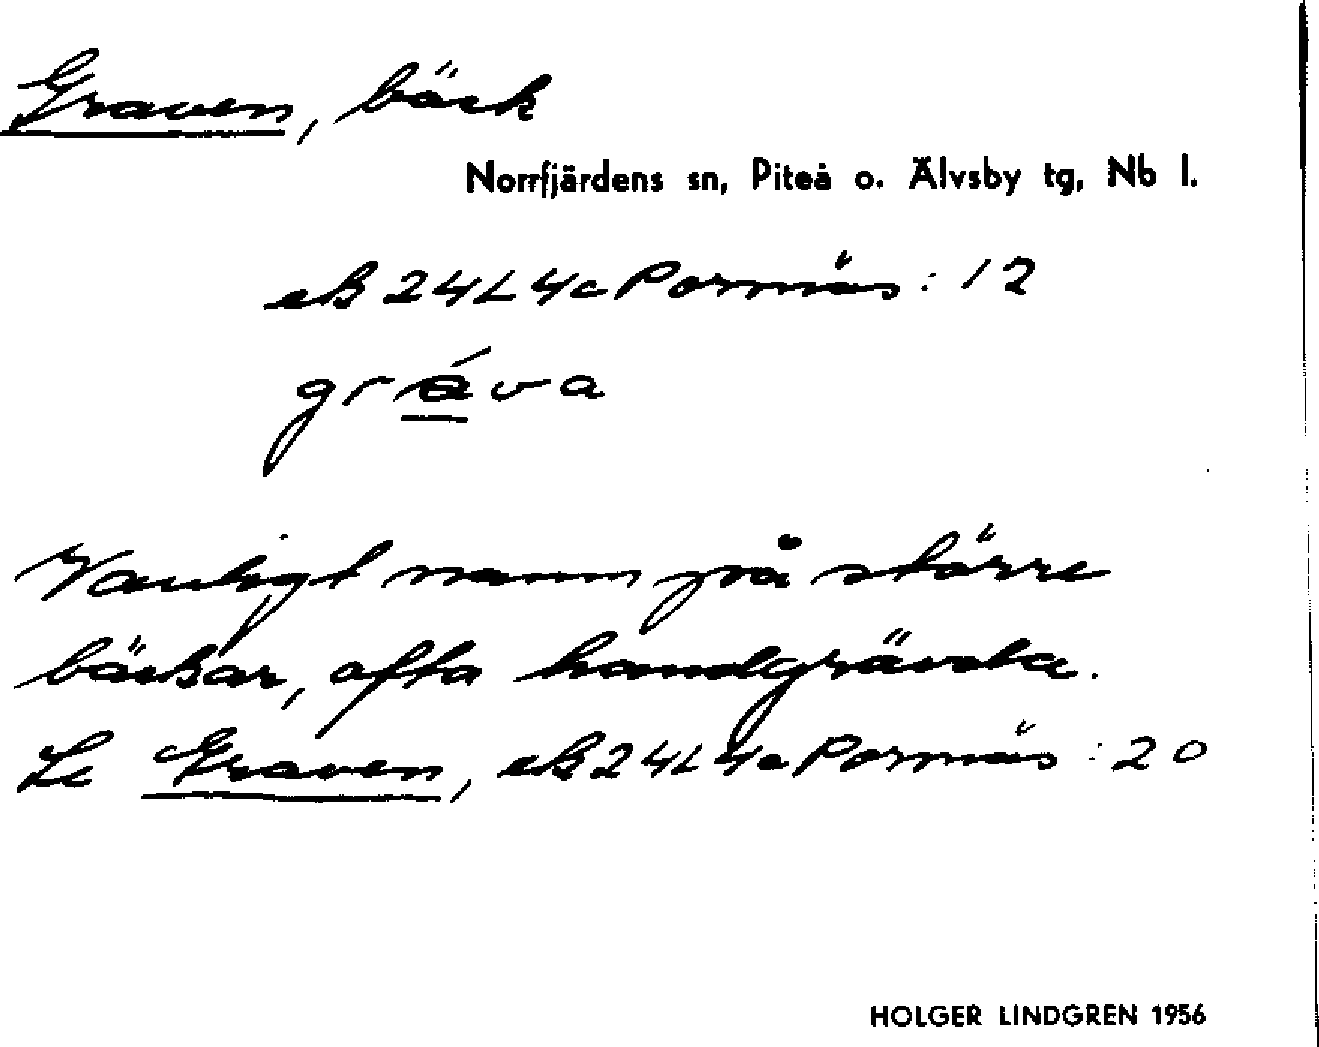 Graven, bäck
Norrfjärdens sn, Piteå o. Älvsby tg, Nb l.
ekB 24L4c Pornäs: 12
gráva
Vanligt namn på större
bäckar, ofta handgrävda.
Se Graven, ekB24L4c Pornäs: 20
HOLGER LINDGREN 1956